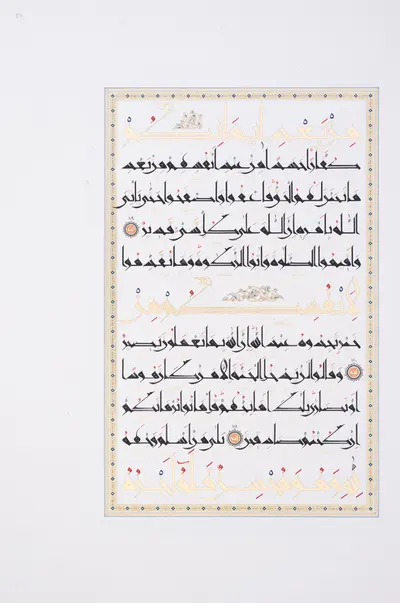 من بعد ايمانكم
كفارا حسدا من عند انفسهم من بعد
ما تبين لهم الحق فاعفوا واصفحوا حتى ياتى
الله بامره ان الله على كل شىء قدير
واقيموا الصلوة واتوا الزكوة وما تقدموا
لانفسكم من
خير تجدوه عند الله ان الله بما تعملون بصير
وقالوا لن يدخل الجنة الا من كان هودا
او نصارى تلك امانيهم قل هاتوا برهانكم
ان كنتم صادقين بلى من اسلم وجهه
لله وهو محسن فله اجره